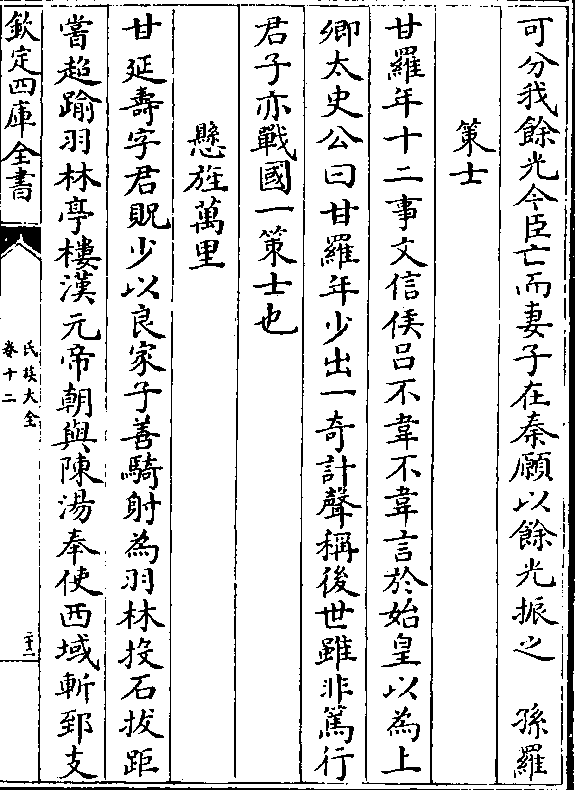 可分我餘光今臣亡而妻子在秦願以餘光振之　孫羅
策士
甘羅年十二事文信侯呂不韋不韋言於始皇以為上
卿太史公曰甘羅年少出一奇計聲稱後世雖非篤行
君子亦戰國一策士也
懸旌萬里
甘延壽字君貺少以良家子善騎射為羽林投石拔距
嘗超踰羽林亭樓漢元帝朝與陳湯奉使西域斬郅支
欽定四庫全書
氏族大全
卷十二